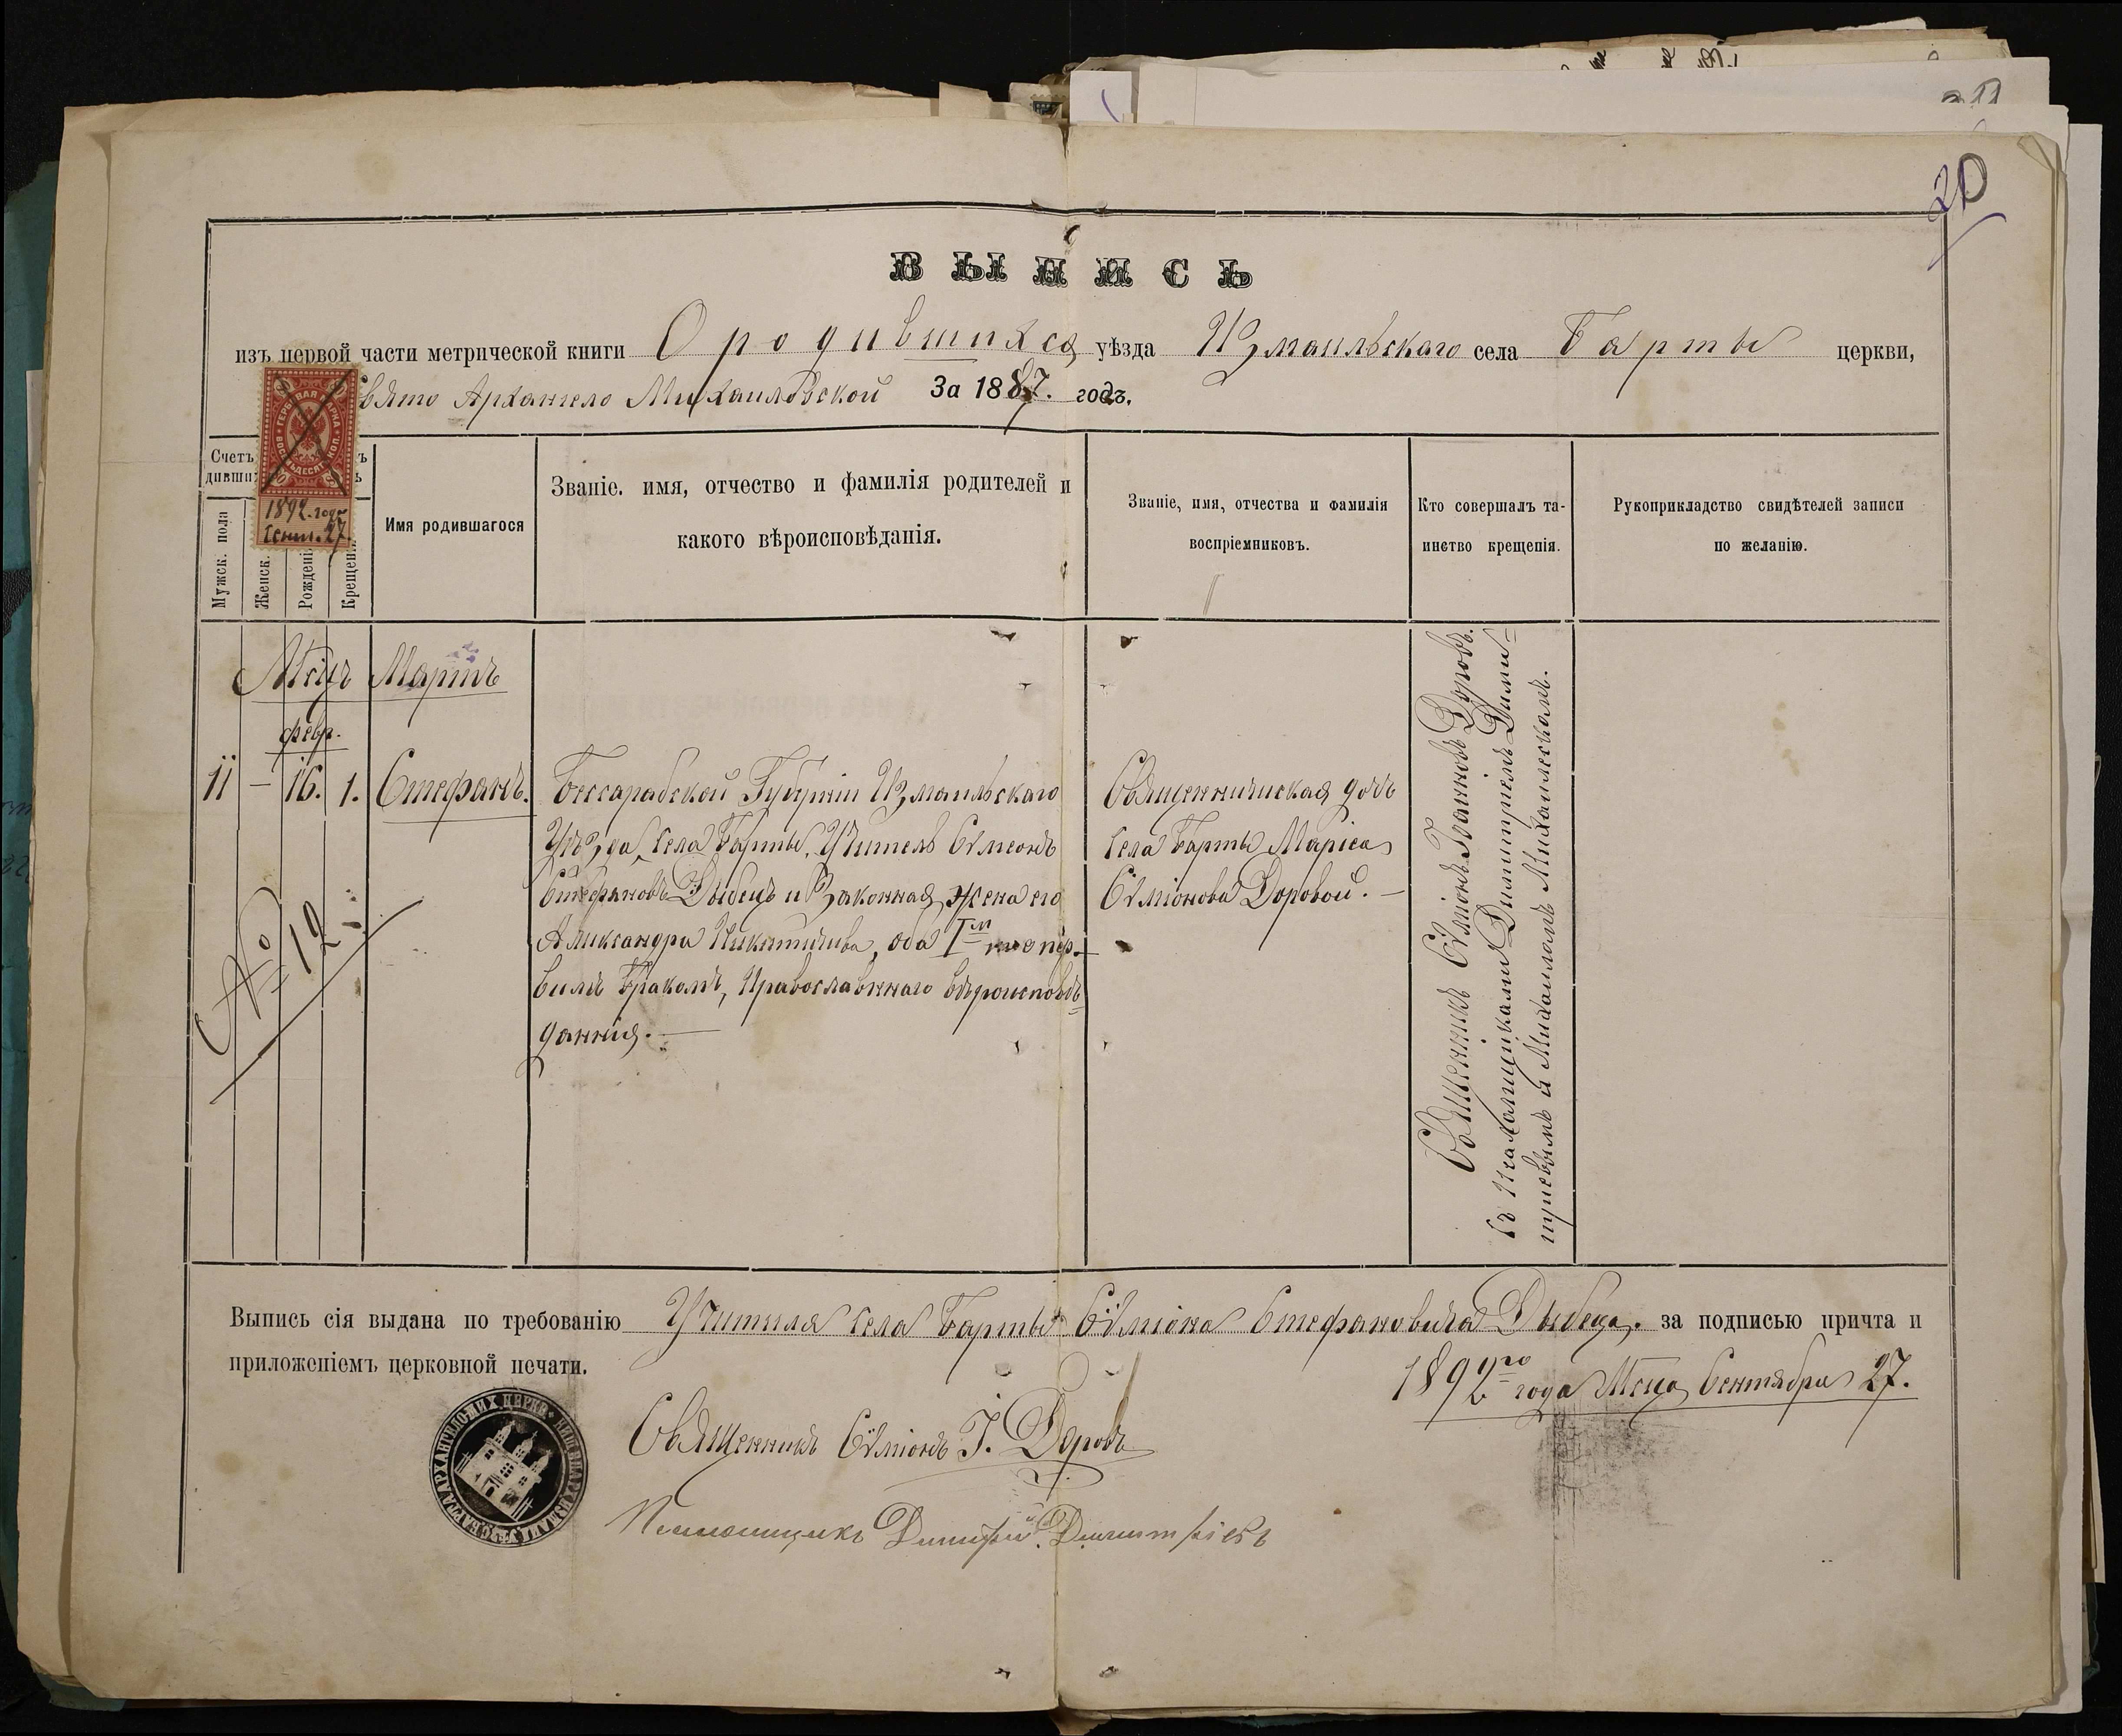 20
ВЫПИСЬ
изъ первой части метрической книги О родившихся уѣзда Измаильскаго села Барты церкви,
Свято Архангело Михаиловской За 1887. годъ.
Счетъ
дивши
ГЕРБОВАЯ МАРКА
ВОСЕМЬДЕСЯТЪ КОП.
80
1892. года
Сент. 27.
Мужск. пола
Женск.
Рожденi
Крещен.
Имя родившагося
Званіе. имя, отчество и фамилія родителей и
какого вѣроисповѣданія.
Званіе, имя, отчества и фамилія
воспріемниковъ.
Кто совершалъ та-
инство крещенія.
Рукоприкладство свидѣтелей записи
по желанію.
Мсцъ Мартъ
февр.
11 — 16. 1. Стефанъ.
№ 12
Бессарабской Губерніи Измаильскаго
Уѣзда, села Барты, Учитель Сѵмеонъ
Стефановъ Дыбецъ и Законная жена его
Александра Никитичева, оба Iм
вымъ бракомъ, Православннаго вѣроисповѣ=
данния.—
Священническая дочь
села Барты Марія
Сѵміонова Доровой. —
Священникъ Сѵміонъ Іоанновъ Доровъ.
съ псаломщиками Димитріемъ Дими=
тріевымъ и Михаиломъ Михаилескомъ.
Выпись сія выдана по требованію Учителя села Барты Сѵміона Стефановича Дыбеца. за подписью причта и
приложеніемъ церковной печати.
1892го года Мсца Сентября 27.
Священникъ Сѵміонъ І. Доровъ
Псаломщикъ Димитрій Димитріевъ